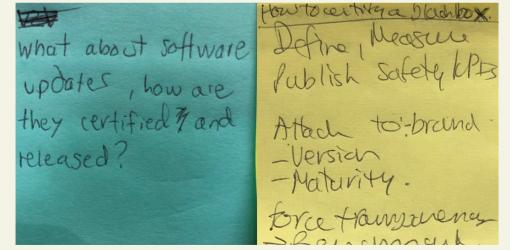 What about software
updates, how are
they certified and
released?
How to certify a blackbox.
Define, Measure
Publish safety KPIs
Attach to: brand
-Version
-Maturity.
force transparency